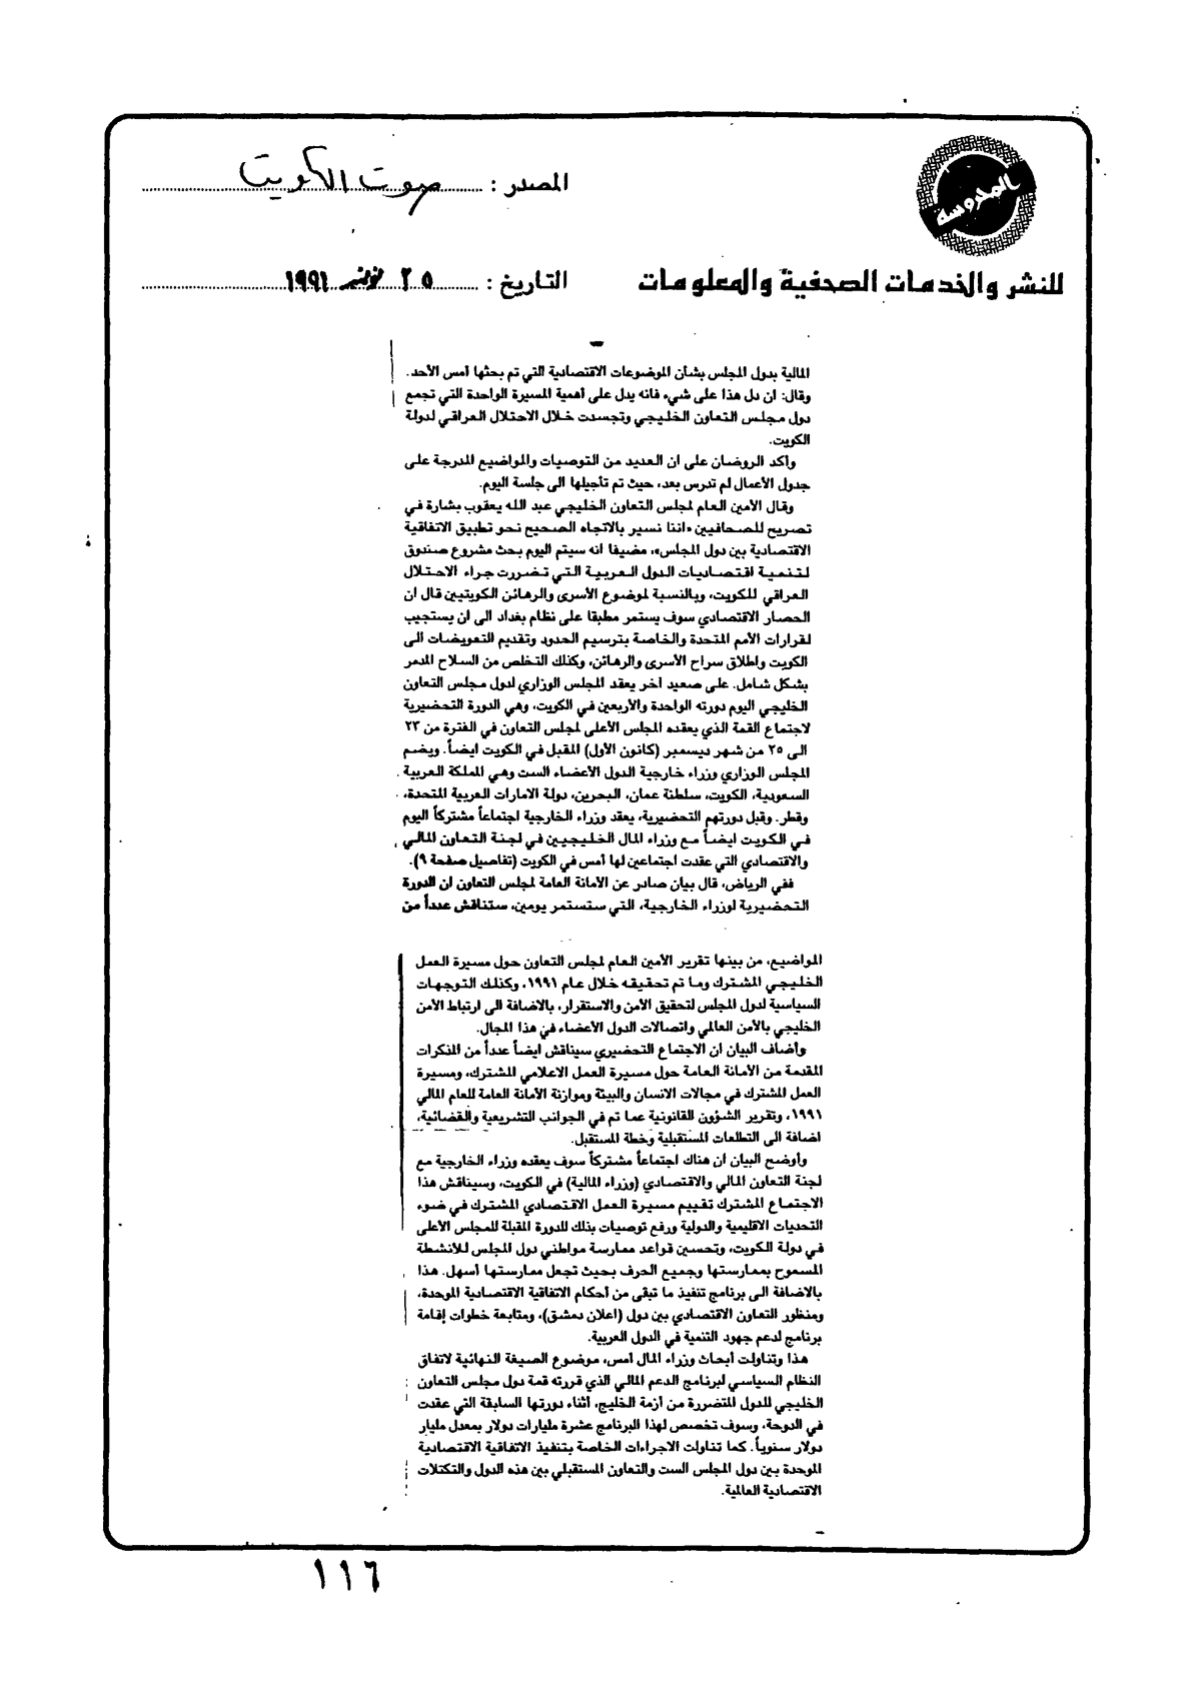 المصدر : صوت الكويت
المحروسة
للنشر والخدمات الصحفية والمعلومات
التاريخ : ٢٥ نوفمبر ١٩٩١
المالية بدول المجلس بشأن الموضوعات الاقتصادية التي تم بحثها أمس الأحد.
وقال: ان دل هذا على شيء فانه يدل على أهمية المسيرة الواحدة التي تجمع
دول مجلس التعاون الخليجي وتجسدت خلال الاحتلال العراقي لدولة
الكويت.
وأكد الروضان على ان العديد من التوصيات والمواضيع المدرجة على
جدول الأعمال لم تدرس بعد، حيث تم تأجيلها الى جلسة اليوم.
وقال الأمين العام لمجلس التعاون الخليجي عبد الله يعقوب بشارة في
تصريح للصحافيين «اننا نسير بالاتجاه الصحيح نحو تطبيق الاتفاقية
الاقتصادية بين دول المجلس»، مضيفا انه سيتم اليوم بحث مشروع صندوق
لتنمية اقتصاديات الدول العربية التي تضررت جراء الاحتلال
العراقي للكويت، وبالنسبة لموضوع الأسرى والرهائن الكويتيين قال ان
الحصار الاقتصادي سوف يستمر مطبقا على نظام بغداد الى ان يستجيب
لقرارات الأمم المتحدة والخاصة بترسيم الحدود وتقديم التعويضات الى
الكويت واطلاق سراح الأسرى والرهائن، وكذلك التخلص من السلاح المدمر
بشكل شامل. على صعيد اخر يعقد المجلس الوزاري لدول مجلس التعاون
الخليجي اليوم دورته الواحدة والأربعين في الكويت، وهي الدورة التحضيرية
لاجتماع القمة الذي يعقده المجلس الأعلى لمجلس التعاون في الفترة من ٢٣
الى ٢٥ من شهر ديسمبر (كانون الأول) المقبل في الكويت ايضاً. ويضم
المجلس الوزاري وزراء خارجية الدول الأعضاء الست وهي المملكة العربية
السعودية، الكويت، سلطنة عمان، البحرين، دولة الامارات العربية المتحدة،
وقطر. وقبل دورتهم التحضيرية، يعقد وزراء الخارجية اجتماعاً مشتركاً اليوم
في الكويت ايضاً مع وزراء المال الخليجيين في لجنة التعاون المالي
والاقتصادي التي عقدت اجتماعين لها أمس في الكويت (تفاصيل صفحة ٩).
ففي الرياض، قال بيان صادر عن الأمانة العامة لمجلس التعاون ان الدورة
التحضيرية لوزراء الخارجية، التي ستستمر يومين، ستناقش عدداً من
المواضيع، من بينها تقرير الأمين العام لمجلس التعاون حول مسيرة العمل
الخليجي المشترك وما تم تحقيقه خلال عام ١٩٩١، وكذلك التوجهات
السياسية لدول المجلس لتحقيق الأمن والاستقرار، بالاضافة الى ارتباط الأمن
الخليجي بالأمن العالمي واتصالات الدول الأعضاء في هذا المجال.
وأضاف البيان ان الاجتماع التحضيري سيناقش ايضاً عدداً من المذكرات
المقدمة من الأمانة العامة حول مسيرة العمل الاعلامي المشترك، ومسيرة
العمل المشترك في مجالات الانسان والبيئة وموازنة الأمانة العامة للعام المالي
١٩٩١، وتقرير الشؤون القانونية عما تم في الجوانب التشريعية والقضائية،
اضافة الى التطلعات المستقبلية وخطة المستقبل.
وأوضح البيان ان هناك اجتماعاً مشتركاً سوف يعقده وزراء الخارجية مع
لجنة التعاون المالي والاقتصادي (وزراء المالية) في الكويت، وسيناقش هذا
الاجتماع المشترك تقييم مسيرة العمل الاقتصادي المشترك في ضوء
التحديات الاقليمية والدولية ورفع توصيات بذلك للدورة المقبلة للمجلس الأعلى
في دولة الكويت، وتحسين قواعد ممارسة مواطني دول المجلس للأنشطة
المسموح بممارستها وجميع الحرف بحيث تجعل ممارستها أسهل. هذا
بالاضافة الى برنامج تنفيذ ما تبقى من أحكام الاتفاقية الاقتصادية الموحدة،
ومنظور التعاون الاقتصادي بين دول (اعلان دمشق)، ومتابعة خطوات إقامة
برنامج لدعم جهود التنمية في الدول العربية.
هذا وتناولت أبحاث وزراء المال أمس، موضوع الصيغة النهائية لاتفاق
النظام السياسي لبرنامج الدعم المالي الذي قررته قمة دول مجلس التعاون
الخليجي للدول المتضررة من أزمة الخليج، أثناء دورتها السابقة التي عقدت
في الدوحة، وسوف تخصص لهذا البرنامج عشرة مليارات دولار بمعدل مليار
دولار سنوياً. كما تناولت الاجراءات الخاصة بتنفيذ الاتفاقية الاقتصادية
الموحدة بين دول المجلس الست والتعاون المستقبلي بين هذه الدول والتكتلات
الاقتصادية العالمية.
١١٦